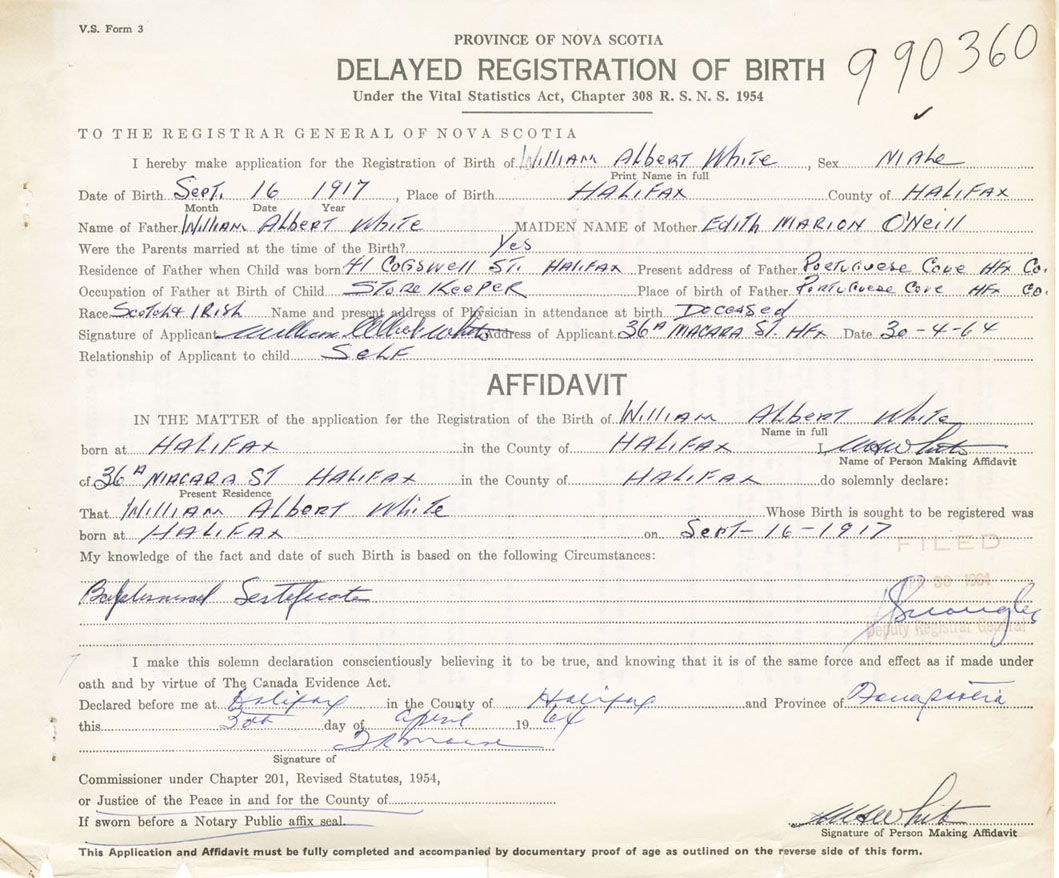 V.S. Form 3
990360
PROVINCE OF NOVA SCOTIA
DELAYED REGISTRATION OF BIRTH
Under the Vital Statistics Act, Chapter 308 R. S. N. S. 1954
TO THE REGISTRAR GENERAL OF NOVA SCOTIA
I hereby make application for the Registration of Birth of William Albert White, Sex Male
Print Name in full
Date of Birth Sept. 16 1917, Place of Birth HALIFAX County of HALIFAX
Month Date Year
Name of Father William Albert White MAIDEN NAME of Mother Edith MARION O'Neill
Were the Parents married at the time of the Birth? Yes
Residence of Father when Child was born 41 COGSWELL ST. HALIFAX Present address of Father PORTUGUESE COVE HFX CO.
Occupation of Father at Birth of Child STORE KEEPER Place of birth of Father PORTUGUESE COVE HFX CO.
Race SCOTCH & IRISH Name and present address of Physician in attendance at birth DECEASED
Signature of Applicant William Albert White Address of Applicant 36A NIAGARA ST. HFX Date 30-4-64
Relationship of Applicant to child SELF
AFFIDAVIT
IN THE MATTER of the application for the Registration of the Birth of William Albert White
Name in full
born at HALIFAX in the County of HALIFAX I, WA White
Name of Person Making Affidavit
of 36A NIAGARA ST HALIFAX in the County of HALIFAX do solemnly declare:
Present Residence
That William Albert White Whose Birth is sought to be registered was
born at HALIFAX on Sept-16-1917
My knowledge of the fact and date of such Birth is based on the following Circumstances:
FILED
30 1964
Baptismal Sertificate
Deputy Registrar General
I make this solemn declaration conscientiously believing it to be true, and knowing that it is of the same force and effect as if made under
oath and by virtue of The Canada Evidence Act.
Declared before me at Halifax in the County of Halifax and Province of Nova Scotia
this 30th day of April 1964
Signature of
Commissioner under Chapter 201, Revised Statutes, 1954,
or Justice of the Peace in and for the County of
If sworn before a Notary Public affix seal.
WA White
Signature of Person Making Affidavit
This Application and Affidavit must be fully completed and accompanied by documentary proof of age as outlined on the reverse side of this form.